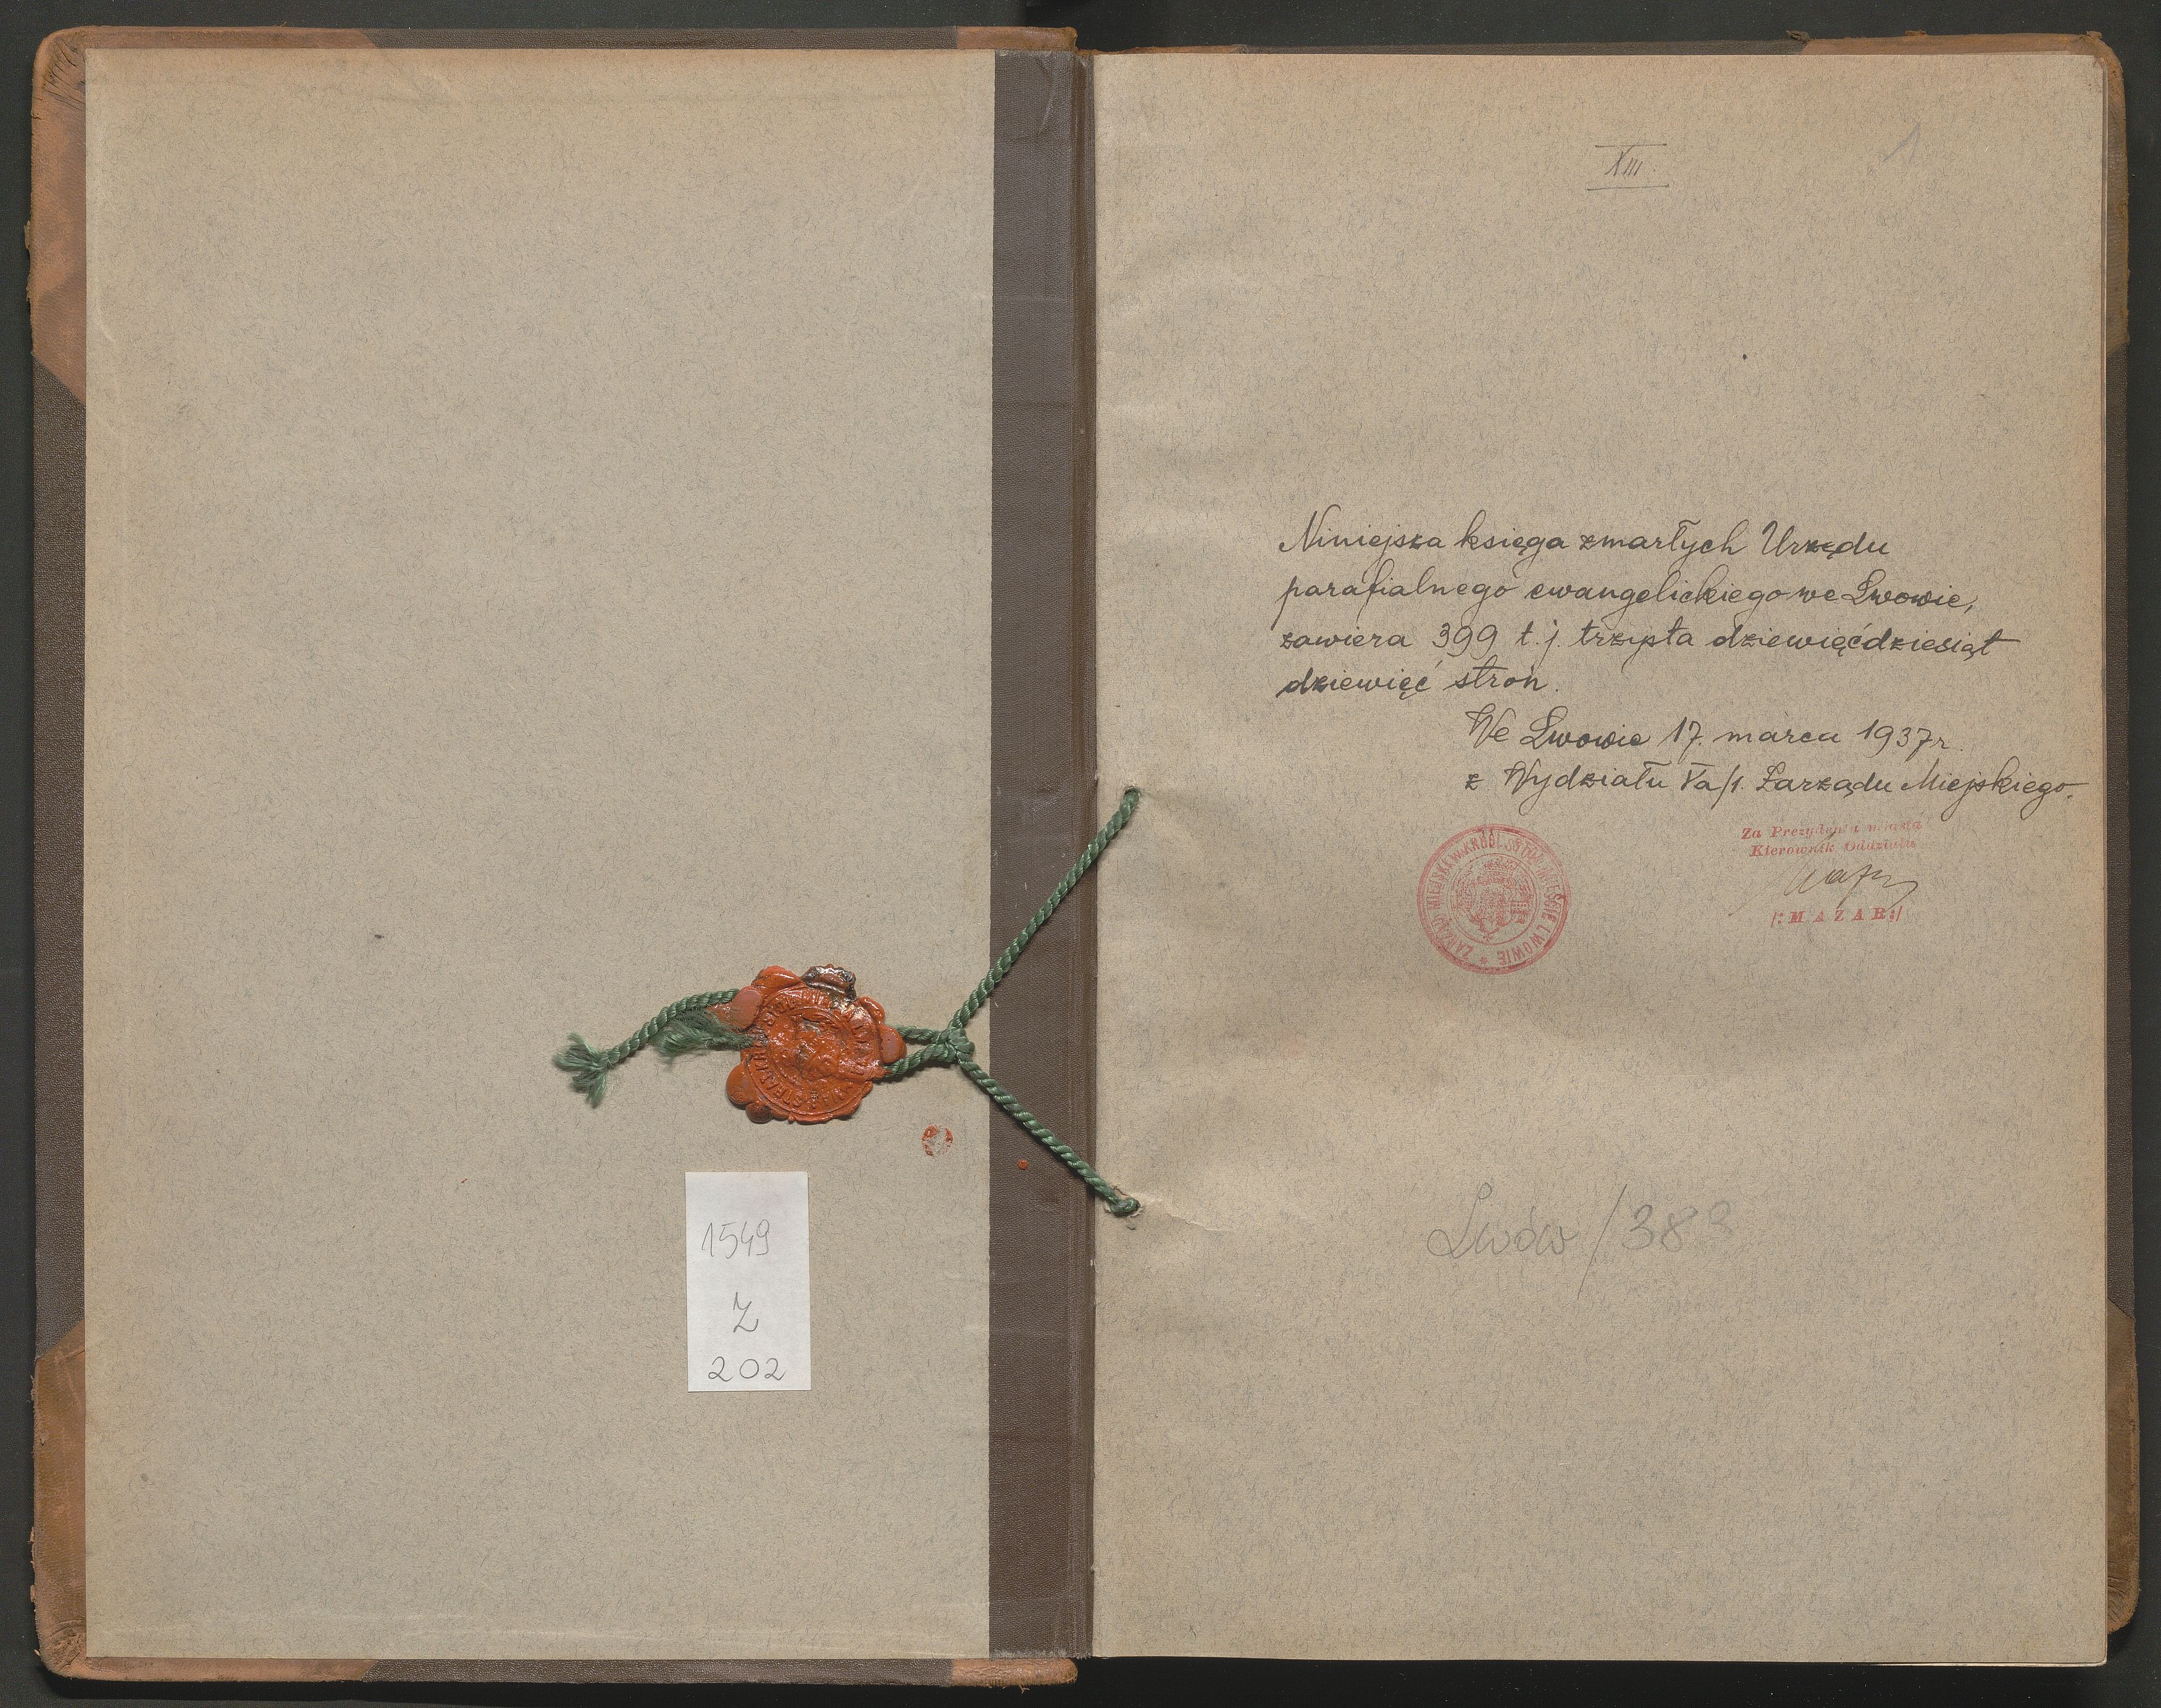 1549
Z
202
XIII.
1
Niniejsza księga zmarłych Urzędu
parafialnego ewangelickiego we Lwowie,
zawiera 399 t.j. trzysta dziewięćdziesiąt
dziewięć stron.
We Lwowie 17. marca 1937 r.
z Wydziału Va/1. Zarządu Miejskiego.
ZARZĄD MIEJSKI W KRÓL. STOŁ. MIEŚCIE LWOWIE *
Za Prezydenta miasta
Kierownik Oddziału
/: M A Z A R :/
Lwów / 38